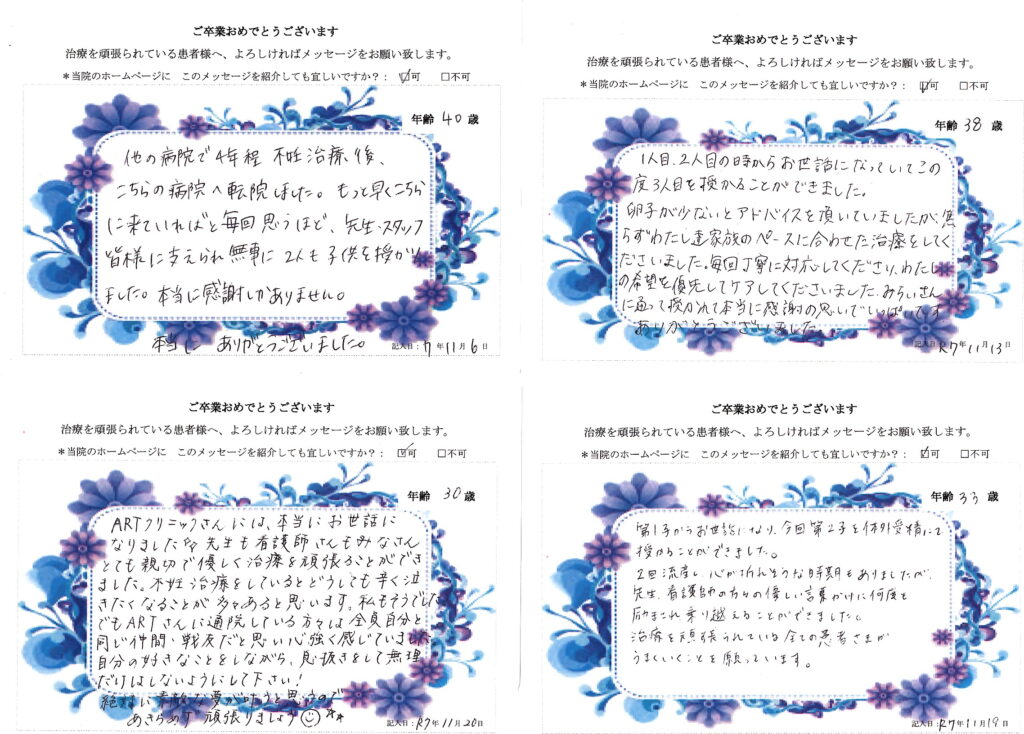 ご卒業おめでとうございます
治療を頑張られている患者様へ、よろしければメッセージをお願い致します。
＊当院のホームページに　このメッセージを紹介しても宜しいですか？： ☑可　□不可
年齢 40 歳
他の病院で4年程 不妊治療後、
こちらの病院へ転院しました。もっと早くこちら
に来ていればと毎回思うほど、先生・スタッフ
皆様に支えられ無事に2人も子供を授かり
ました。本当に感謝しかありません。
本当に ありがとうございました。
記入日：7年11月6日
ご卒業おめでとうございます
治療を頑張られている患者様へ、よろしければメッセージをお願い致します。
＊当院のホームページに　このメッセージを紹介しても宜しいですか？： ☑可　□不可
年齢 38 歳
1人目、2人目の時からお世話になっていてこの
度3人目を授かることができました。
卵子が少ないとアドバイスを頂いていましたが、焦
らずわたし達家族のペースに合わせた治療をしてく
ださいました。毎回丁寧に対応してくださり、わたし
の希望を優先してケアしてくださいました。みらいさん
に通って授かれて本当に感謝の思いでいっぱいです
ありがとうございました。
記入日：R7年11月13日
ご卒業おめでとうございます
治療を頑張られている患者様へ、よろしければメッセージをお願い致します。
＊当院のホームページに　このメッセージを紹介しても宜しいですか？： ☑可　□不可
年齢 30 歳
ARTクリニックさんには、本当にお世話に
なりました 先生も看護師さんもみなさん
とても親切で優しく治療を頑張ることができ
ました。不妊治療をしているとどうしても辛く泣
きたくなることが多々あると思います。私もそうでした
でもARTさんに通院している方々は全員自分と
同じ仲間・戦友だと思い心強く感じていました
自分の好きなことをしながら、息抜きをして無理
だけはしないようにして下さい！
絶対に素敵な夢が叶うと思うので
あきらめず頑張りましょう☺☆☆
記入日：R7年11月20日
ご卒業おめでとうございます
治療を頑張られている患者様へ、よろしければメッセージをお願い致します。
＊当院のホームページに　このメッセージを紹介しても宜しいですか？： ☑可　□不可
年齢 33 歳
第1子からお世話になり、今回第2子を体外受精にて
授かることができました。
2回流産し、心が折れそうな時期もありましたが、
先生、看護師の方々の優しい言葉かけに何度も
励まされ乗り越えることができました。
治療を頑張られている全ての患者さまが
うまくいくことを願っています。
記入日：R7年11月19日